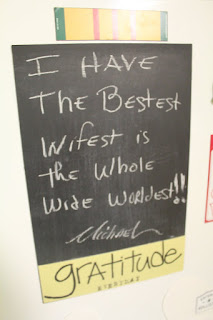 I HAVE
The Bestest
Wifest is
the Whole
Wide Worldest!!
Michael
gratitude